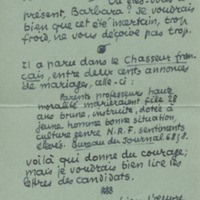 présent, Barbara? Je voudrais
bien que cet été incertain, trop
froid, ne vous déçoive pas trop.
Il a paru dans le Chasseur fran-
çais, entre deux cents annonces
de mariages, elle-ci :
Parents professeurs haute
moralité marieraient fille 28
ans brune, instruite, dotée à
jeune homme bonne situation,
culture genre N.R.F. sentiments
élevés. Bureau du Journal
voilà qui donne du courage;
mais je voudrais bien lire les
lettres des candidats.